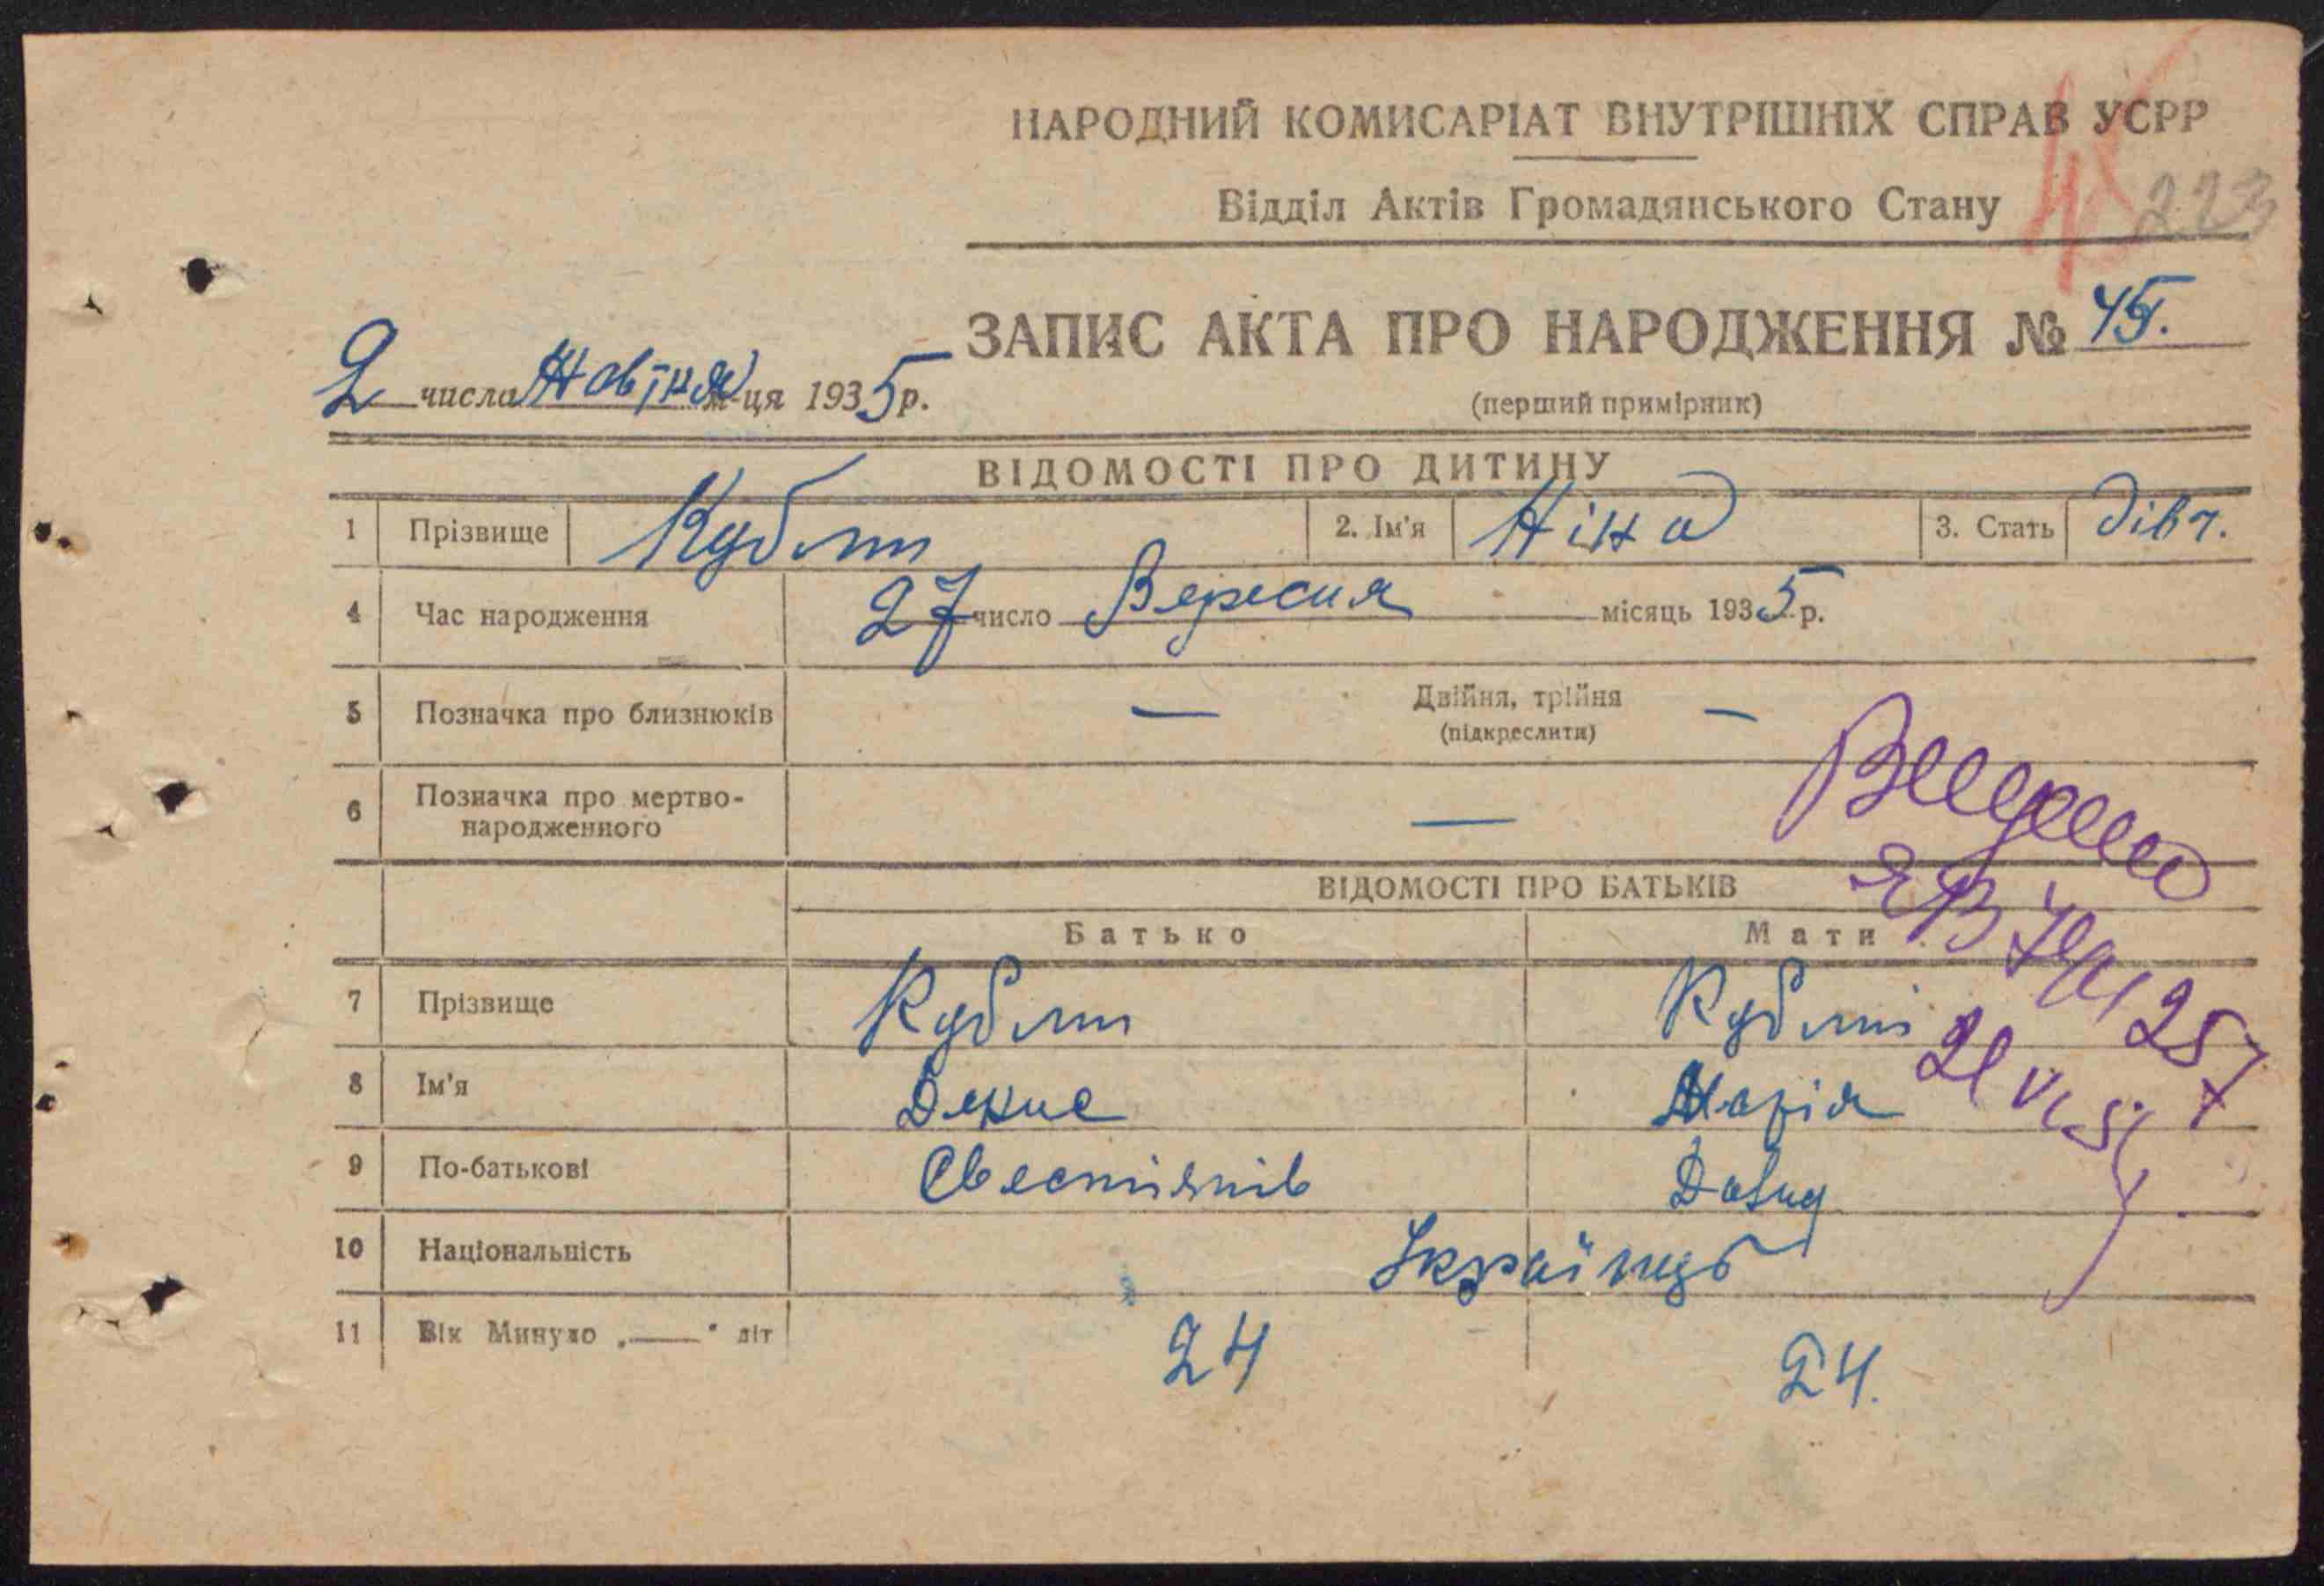 НАРОДНИЙ КОМИСАРІАТ ВНУТРІШНІХ СПРАВ УСРР
Відділ Актів Громадянського Стану
223
ЗАПИС АКТА ПРО НАРОДЖЕННЯ № 45.
2 числа Жовтня м-ця 1935 р.
(перший примірник)
ВІДОМОСТІ ПРО ДИТИНУ
1 Прізвище 2. Ім'я Ніна 3. Стать дівч.
4 Час народження 27 число Вересня місяць 1935 р.
5 Позначка про близнюків — Двійня, трійня —
(підкреслити)
6 Позначка про мертво-
народженного —
ВІДОМОСТІ ПРО БАТЬКІВ
Батько Мати
7 Прізвище
8 Ім'я Денис Марія
9 По-батькові Давид
10 Національність
11 Вік Минуло „—" літ 24 24.